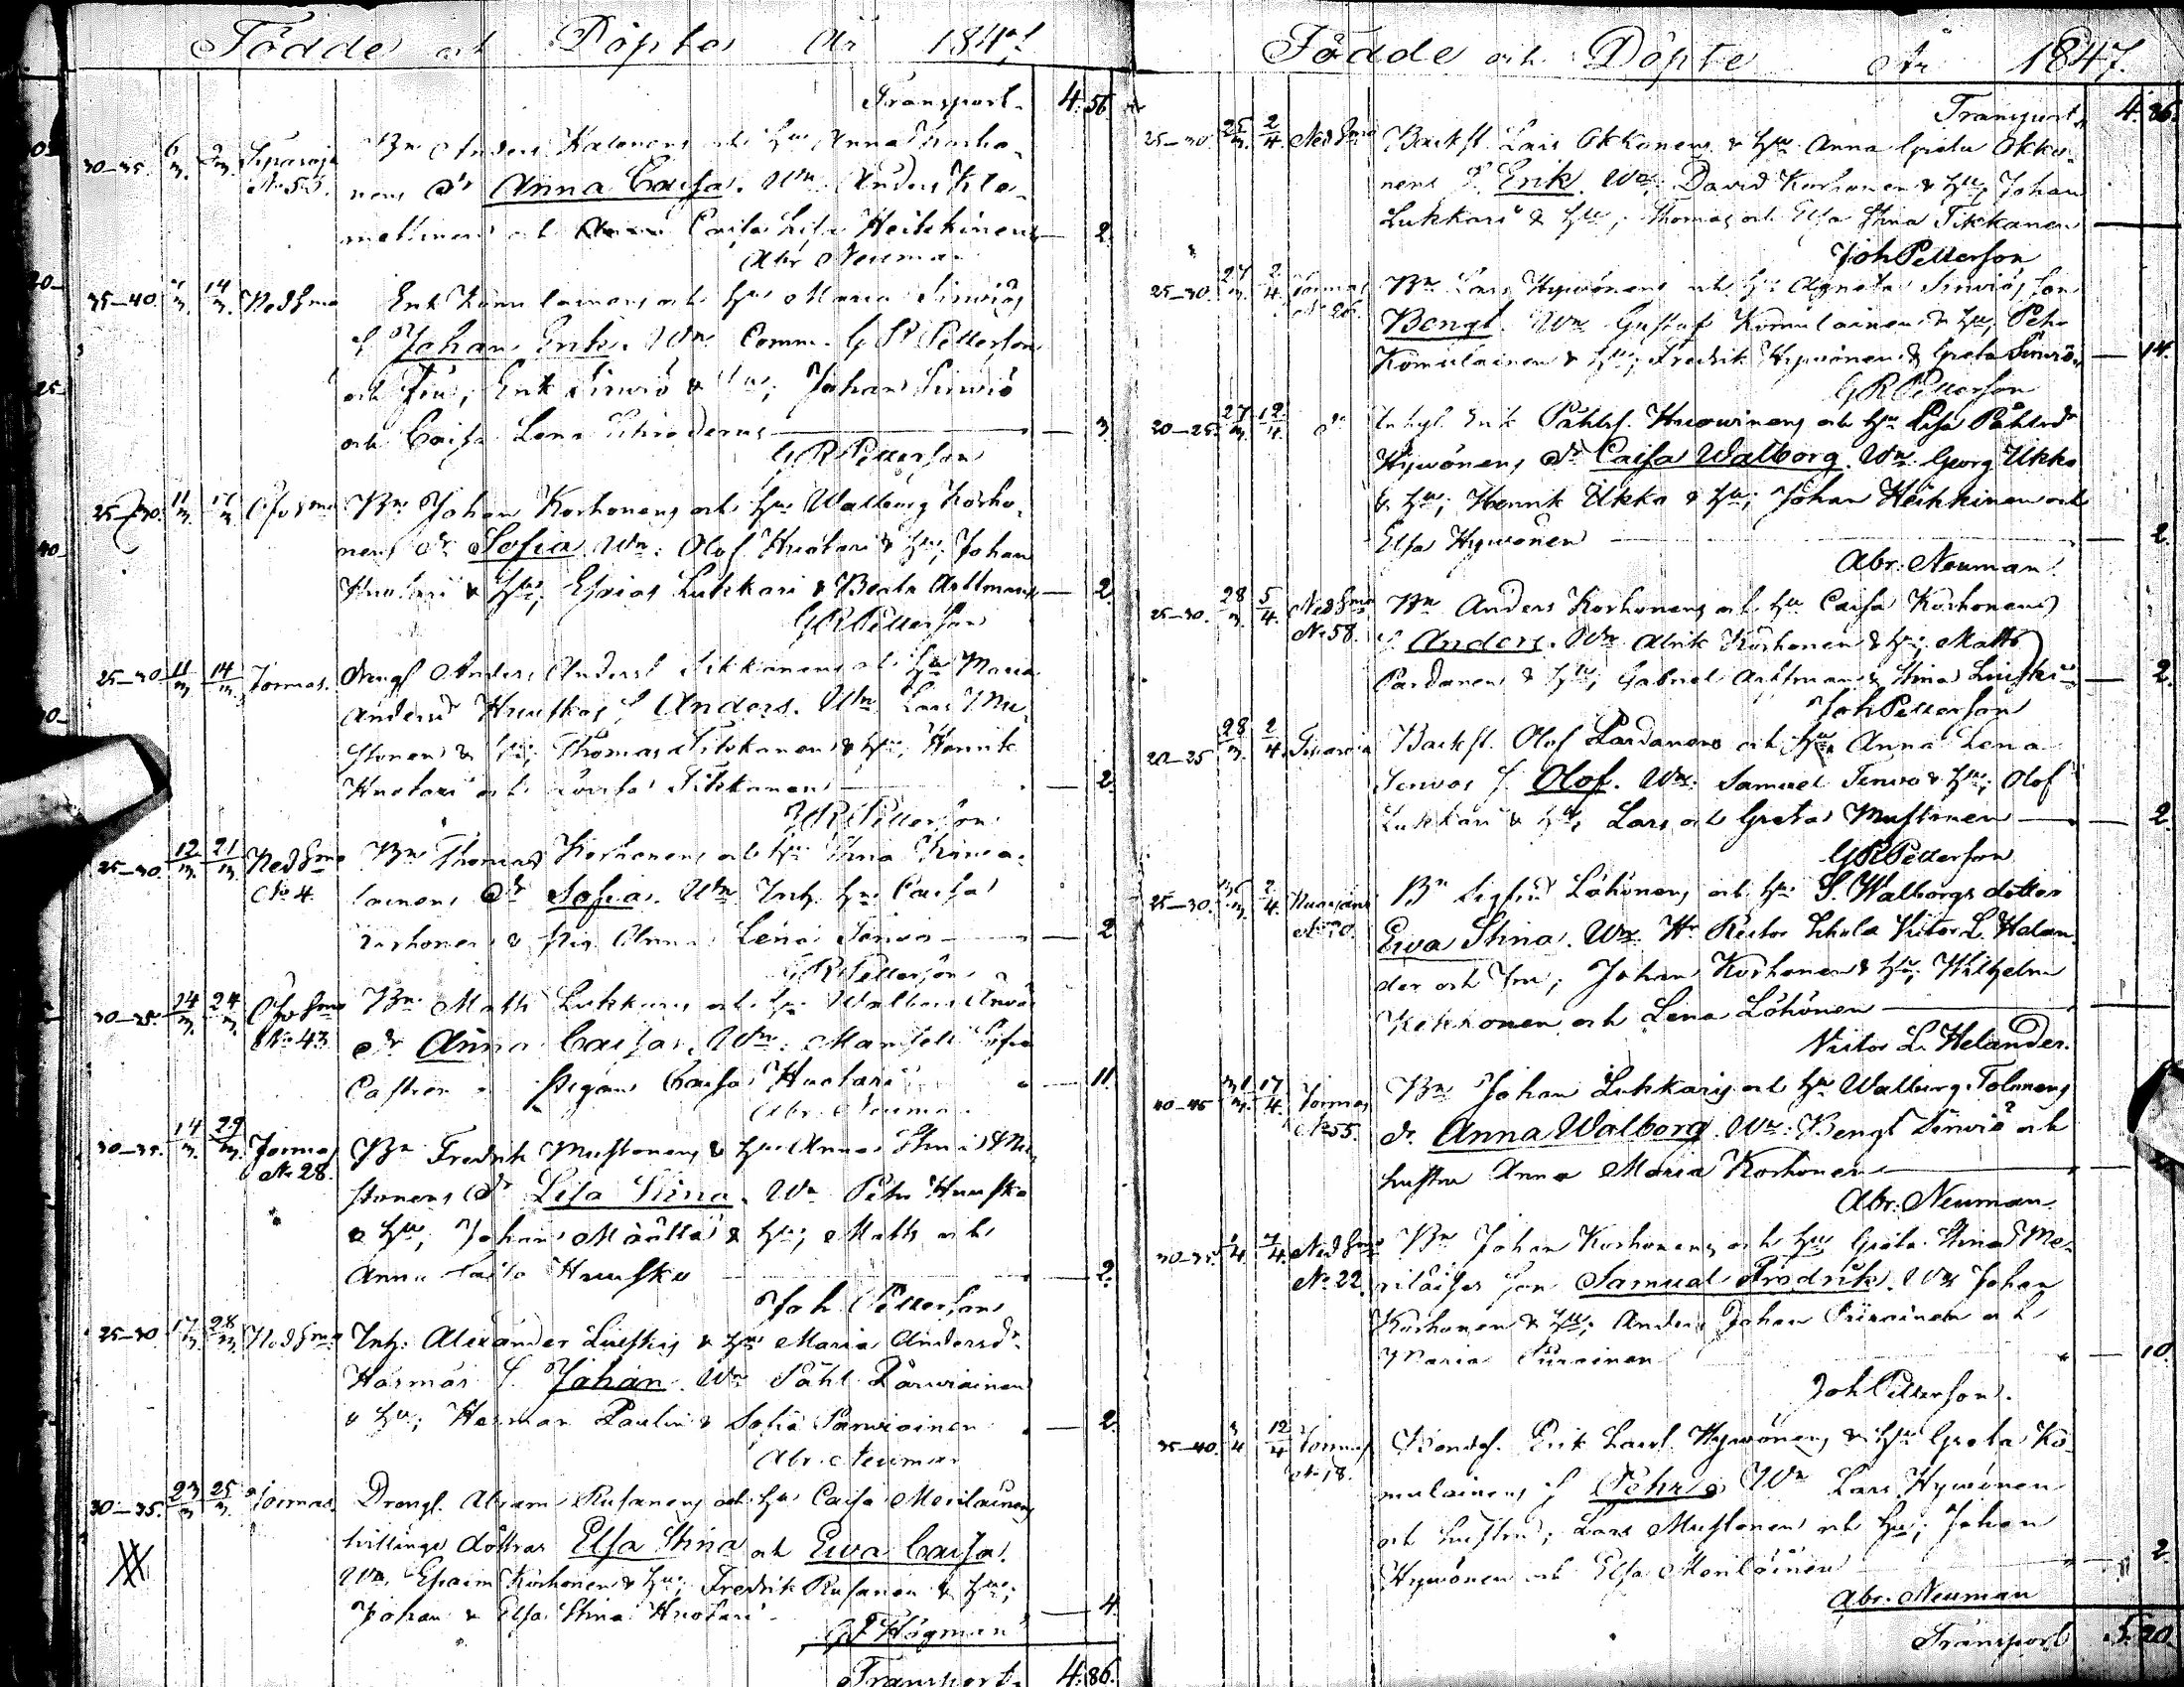 Födde och Döpte År 1847
Transport 4. 56.
30–35. 6/3. Siparaja Bn Anders Kalonens och Hu Anna Korho-
No 53. nens dr Anna Caisa. Wn Anders Klo-
mettinen och Caisa Lisa Heikkinen — 2.
Abr Neuman
35–40. 14/3. Nedhma Erik Komulainens och Hu Maria Sirwiös
S. Johan Erik. Wn Comm. G R Petterson
och Fru; Erik Sirwiö & Hu; Johan Sirwiö
och Caisa Lena Schroderus — 3.
G R Petterson
25–30. 11/3. Öfvhma Bn Johan Korhonens och Hu Walborg Korho-
nens dr Sofia Wn: Olof Huotari & Hu; Johan
Huotari & Hu; Esaias Lukkari & Beata Arttman — 2.
G R Petterson
25–30 11/3 14/3. Jormas. Drengs Anders Anderss. Tikkanens och Hu Maria
Andersd. Huuskos S. Anders. Wn Lars Mu-
stonen & Hu; Thomas Tikkanen & Hu; Henrik
Huotari och Lovisa Tikkanen — 2.
G R Petterson
25–30. 12/3. 21/3. Nedhma Bn Thomas Korhonens och Hu Stina
No 4. lainens dr Sofia. Wn Inh. Hu Caisa
Korhonen & Pig. Anna Lena — 2
G R Petterson
30–35. 24/3. 24/3. Öfvhma Bn Matts Lukkaris och Hu
No 43. dr Anna Caisa. Wn. Mamsell Sofia
Castren & Pigan Caisa Huotari — 11.
Abr. Neuman
30–35. 14/3. 29/3. Jormas Bn Fredrik Mustonens & Hu Anna Stina Mu-
No 28. stonens dr Lisa Stina. Wn Petr Huusko
& Hu; Johan Määttä & Hu; Matts och
Anna Caisa Huusko — 2.
Joh. Petterson
25–30 17/3. 28/3. Nedhma Inh: Alexander & Hu Maria Andersdr
S. Johan. Wn Påhl Parwiainen
& Hu; Herman Paulin & Sofia Parwiainen — 2.
Abr. Neuman
30–35. 23/3 25/3. Jormas Drengs. Abram Rusanens och Hu Caisa Merilainens
tvillings döttrar Elsa Stina och Ewa Caisa.
Wn. Efraim Korhonen & Hu; Fredrik Rusanen & Hu;
Johan & Elsa Stina Huotari — 4.
G F Högman
Transport. 4. 86.
Födde och Döpte År 1847.
Transport 4. 86.
25–30. 25/3. 2/4. Nedhma Backst. Lars Okkonens & Hu Anna Greta Okko-
nens S. Erik. Wn. David Korhonen & Hu; Johan
Lukkari & Hu; Thomas och Elsa Stina Tikkanen —
Joh Petterson
25–30. 27/3. 2/4. Jormas Bn Lars Hywönens och Hu Agneta Sirwiös son
No 26. Bengt. Wn Gustaf Komulainen & Hu; Petr
Komulainen & Hu; Fredrik Hywönen & Greta Sirwiö — 14.
G R Petterson
20–25. 27/3. 12/4. do Inhyl. Erik Påhls. Huowinens och Hu Lisa Påhlsdr
Hywönens dr Caisa Walborg. Wn. Georg Ukko
& Hu; Henrik Ukko & Hu; Johan Heikkinen och
Elsa Hywönen — 2.
Abr. Neuman
25–30. 28/3. 5/4. Nedhma Bn Anders Korhonens och Hu Caisa Korhonens
No 58. S. Anders. Wn Alrik Korhonen & Hu; Matts
Pardanen & Hu; Gabriel Arttman & Stina — 2.
Joh Petterson
20–25 28/3. 2/4. Backst. Olof Pardanens och Hu Anna Lena
S. Olof. Wn. Samuel & Hu; Olof
Lukkari & Hu; Lars och Greta Mustonen — 2.
G R Petterson
25–30. 2/4. Bn Sigfrid Löhönens och Hu S. Walborgs dotter
No 70. Ewa Stina. Wn. Hr Rector Schola Victor L. Helan-
der och Fru; Johan Korhonen & Hu; Wilhelm
Kekkonen och Lena Löhönen —
Victor L. Helander.
40–45 31/3. 17/4. Jormas Bn Johan Lukkaris och Hu Walborg Tolonens
No 55. dr. Anna Walborg. Wn. Bengt Sirwiö och
hustru Anna Maria Korhonen —
Abr. Neuman.
30–35. 1/4 7/4. Nedhma Bn Johan Korhonens och Hu Greta Stina Me-
No 22. riläises son Samuel Fredrik. Wn Johan
Korhonen & Hu; Anders Johan Piirainen och
Maria Piirainen — 10.
Joh Petterson.
35–40. 3/4 12/4 Jormas Bondes. Erik Larss. Hywönens & Hu Greta Ko-
No 18. mulainens S Pehr Wn Lars Hywönen
och hustru; Lars Mustonen och Hu; Johan
Hywönen och Elsa Meriläinen — 2.
Abr. Neuman
Transport 5. 20.